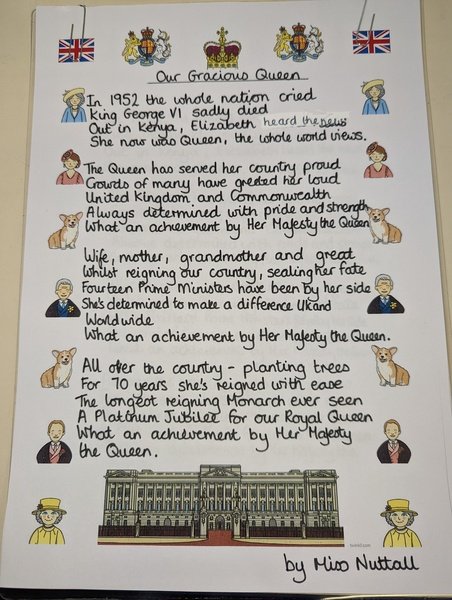 Our Gracious Queen
In 1952 the whole nation cried
King George VI sadly died
Out in Kenya, Elizabeth heard the news
She now was Queen, the whole world views.
The Queen has served her country proud
Crowds of many have greeted her loud
United Kingdom and Commonwealth
Always determined with pride and strength
What an achievement by Her Majesty the Queen
Wife, mother, grandmother and great
Whilst reigning our country, sealing her fate
Fourteen Prime Ministers have been by her side
She's determined to make a difference UK and
Worldwide
What an achievement by Her Majesty the Queen.
All over the country - planting trees
For 70 years she's reigned with ease
The longest reigning Monarch ever seen
A Platinum Jubilee for our Royal Queen
What an achievement by Her Majesty
the Queen.
twinkl.com
by Miss Nuttall